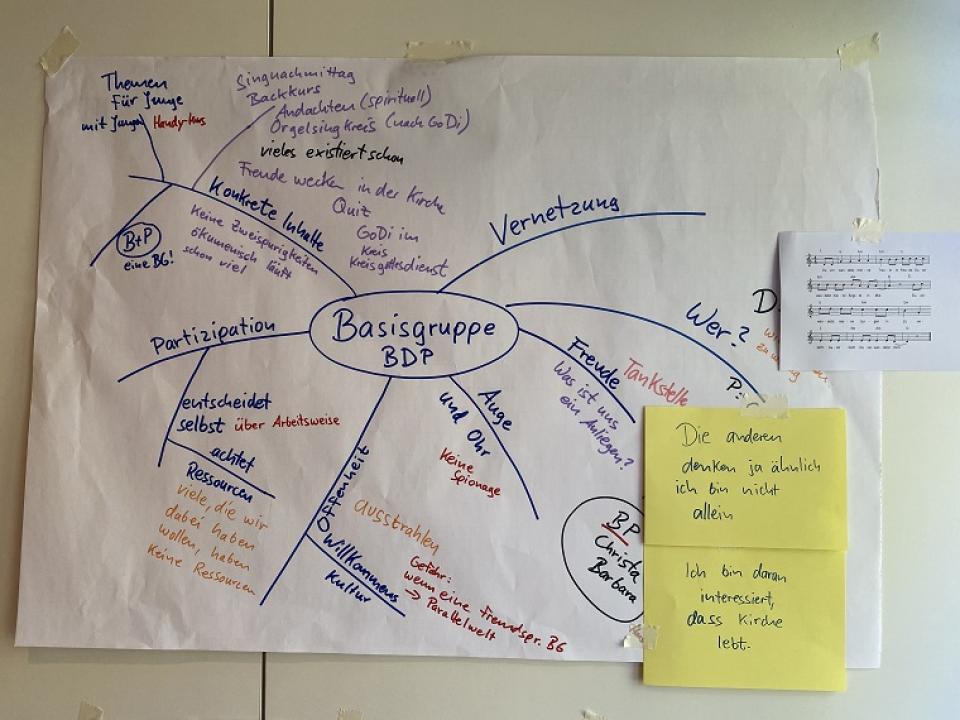 Themen
für Junge
mit Jungen Handy-Kurs
Singnachmittag
Backkurs
Andachten (spirituell)
Orgelsingkreis (nach GoDi)
vieles existiert schon
Freude wecken in der Kirche
Quiz
GoDi im
Kreis
Kreisgottesdienst
Konkrete Inhalte
Keine Zweispurigkeiten
ökumenisch läuft
schon viel
B+P
eine BG!
Vernetzung
Basisgruppe
BDP
Wer?
D
P:
Freude
Tankstelle
Was ist uns
ein Anliegen?
Auge
und Ohr
Keine
Spionage
Partizipation
entscheidet
selbst über Arbeitsweise
achtet
Ressourcen
viele, die wir
dabei haben
wollen, haben
Keine Ressourcen
Offenheit
ausstrahlen
Willkommens
Kultur
Gefahr:
wenn eine fremdspr. BG
→ Parallelwelt
BP
Christa
Barbara
Die anderen
denken ja ähnlich
ich bin nicht
allein
Ich bin daran
interessiert,
dass Kirche
lebt.